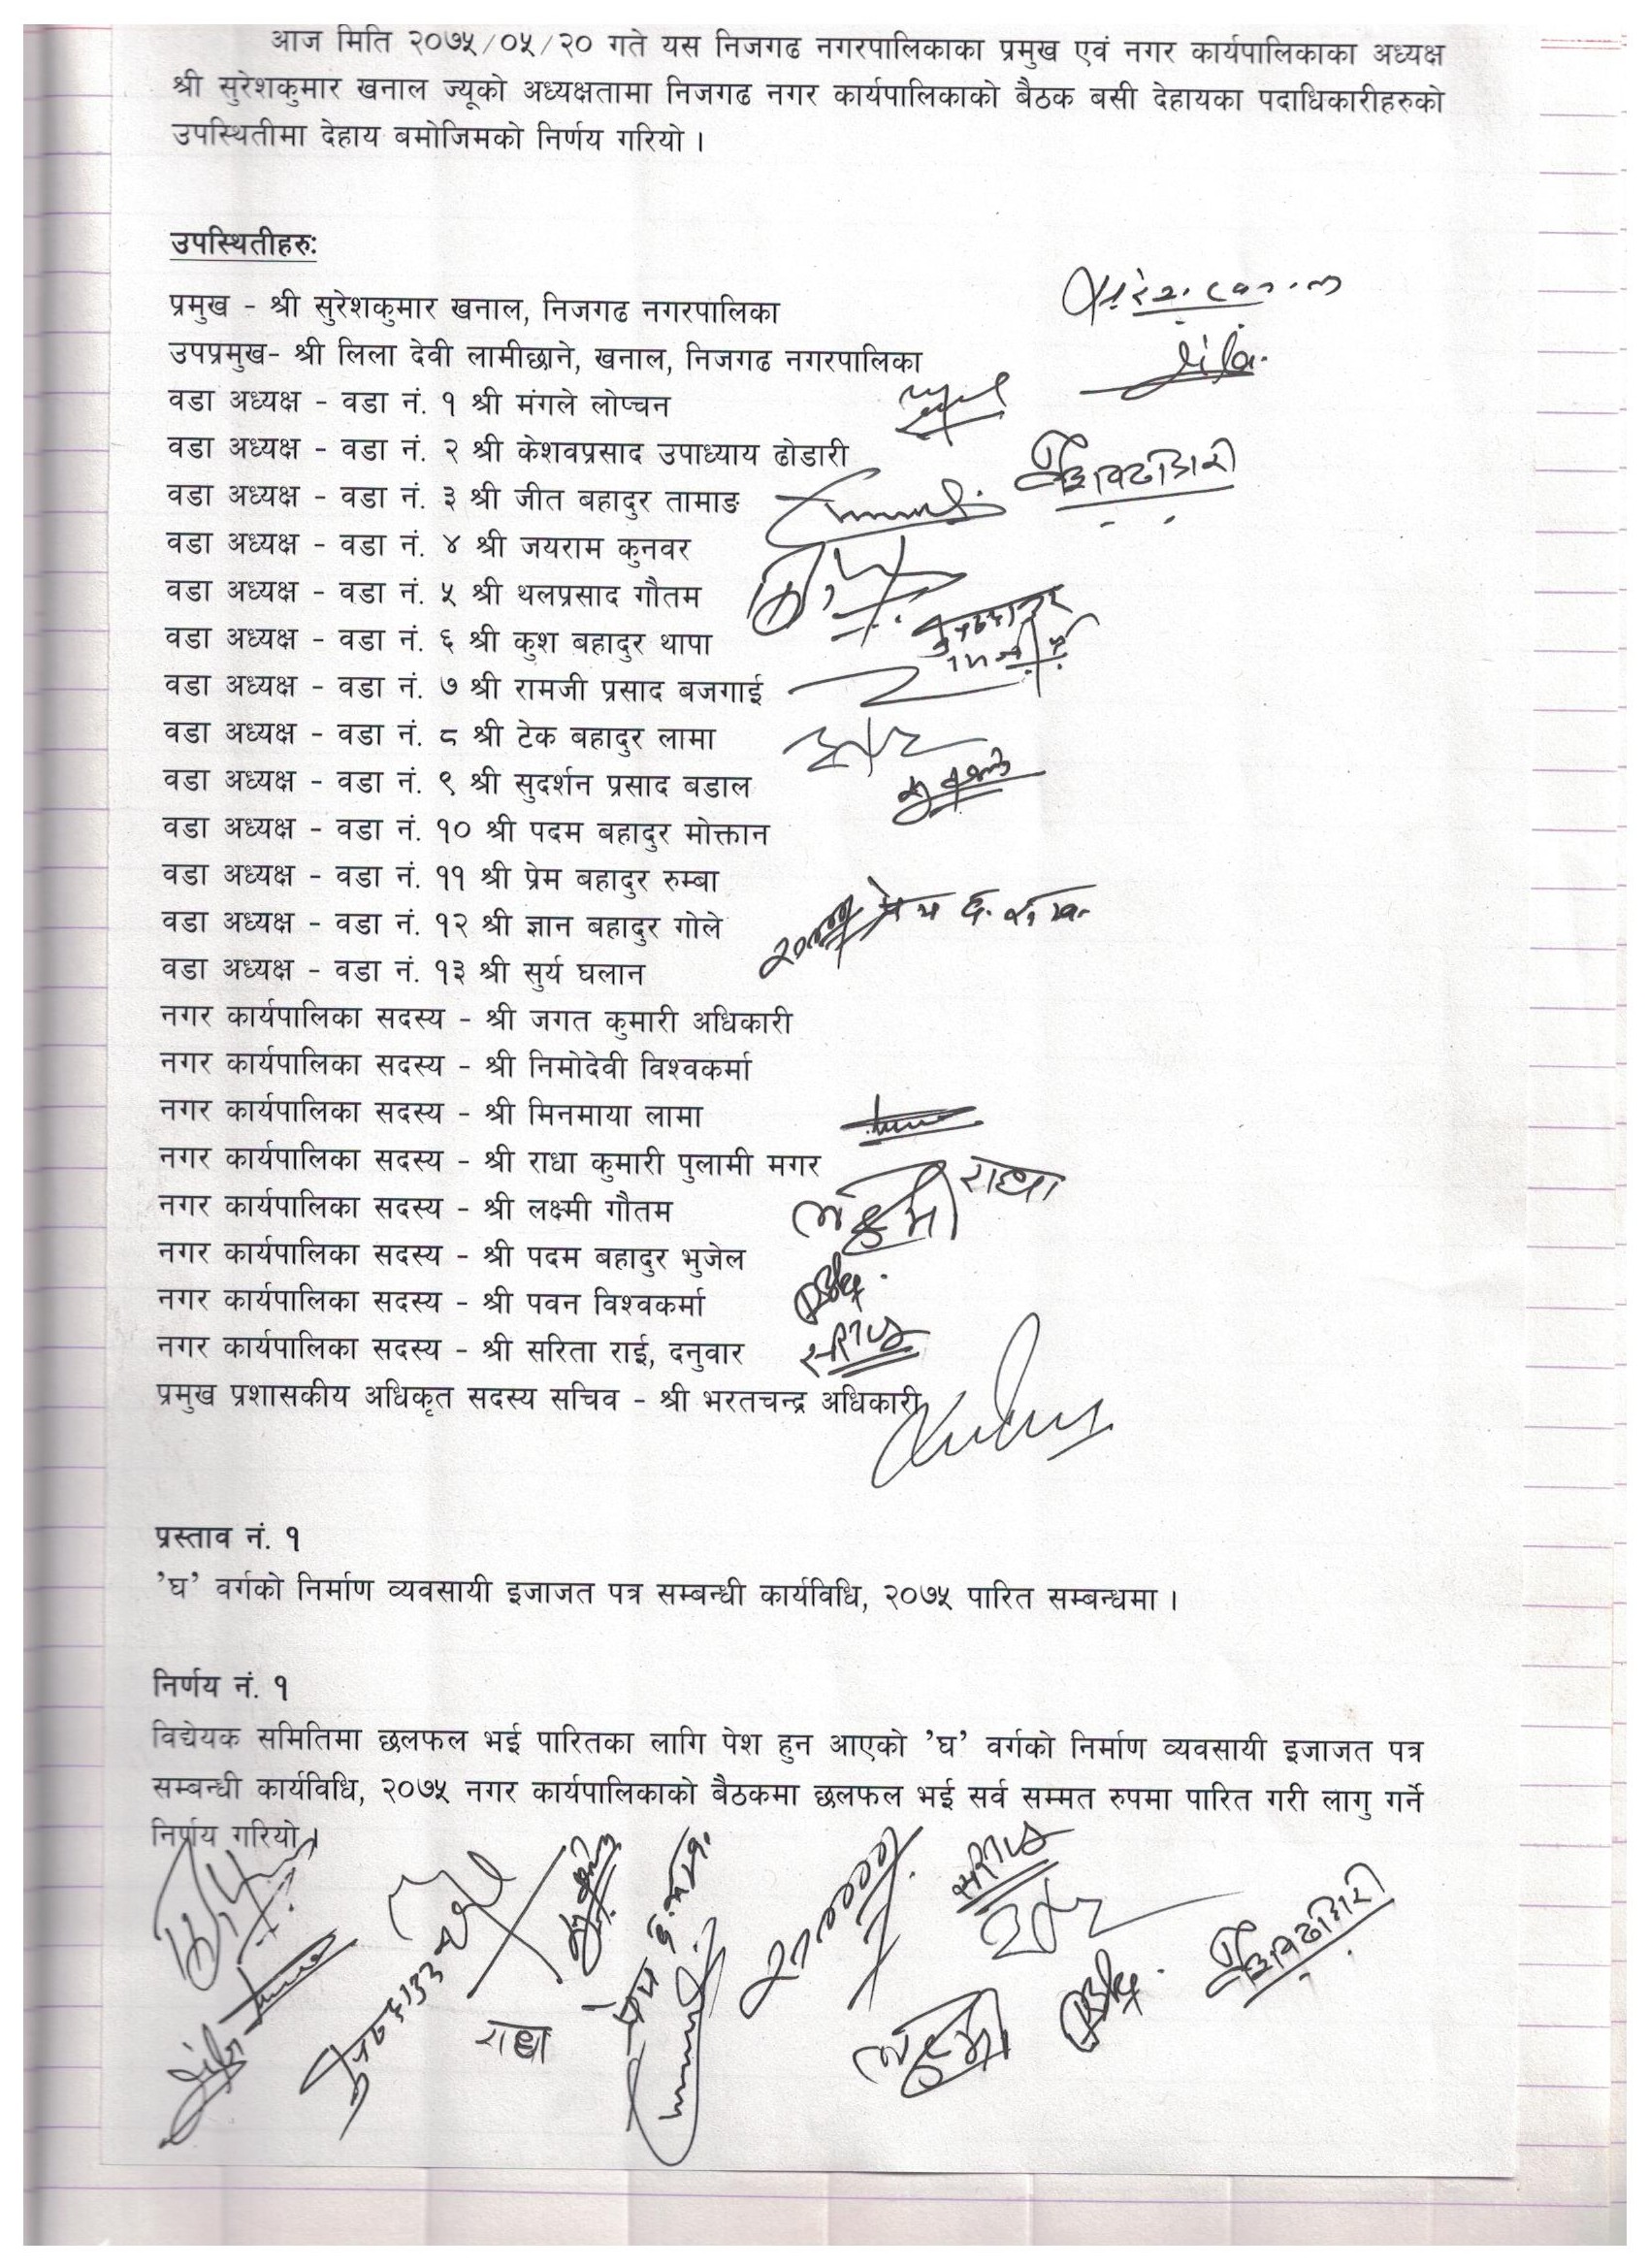 आज मिति २०७५/०५/२० गते यस निजगढ नगरपालिकाका प्रमुख एवं नगर कार्यपालिकाका अध्यक्ष
श्री सुरेशकुमार खनाल ज्यूको अध्यक्षतामा निजगढ नगर कार्यपालिकाको बैठक बसी देहायका पदाधिकारीहरुको
उपस्थितीमा देहाय बमोजिमको निर्णय गरियो ।
उपस्थितीहरु:
प्रमुख - श्री सुरेशकुमार खनाल, निजगढ नगरपालिका
उपप्रमुख- श्री लिला देवी लामीछाने, खनाल, निजगढ नगरपालिका
वडा अध्यक्ष - वडा नं. १ श्री मंगले लोप्चन
वडा अध्यक्ष - वडा नं. २ श्री केशवप्रसाद उपाध्याय ढोडारी
वडा अध्यक्ष - वडा नं. ३ श्री जीत बहादुर तामाङ
वडा अध्यक्ष - वडा नं. ४ श्री जयराम कुनवर
वडा अध्यक्ष - वडा नं. ५ श्री थलप्रसाद गौतम
वडा अध्यक्ष - वडा नं. ६ श्री कुश बहादुर थापा
वडा अध्यक्ष - वडा नं. ७ श्री रामजी प्रसाद बजगाई
वडा अध्यक्ष - वडा नं. ८ श्री टेक बहादुर लामा
वडा अध्यक्ष - वडा नं. ९ श्री सुदर्शन प्रसाद बडाल
वडा अध्यक्ष - वडा नं. १० श्री पदम बहादुर मोक्तान
वडा अध्यक्ष - वडा नं. ११ श्री प्रेम बहादुर रुम्बा
वडा अध्यक्ष - वडा नं. १२ श्री ज्ञान बहादुर गोले
वडा अध्यक्ष - वडा नं. १३ श्री सुर्य घलान
नगर कार्यपालिका सदस्य - श्री जगत कुमारी अधिकारी
नगर कार्यपालिका सदस्य - श्री निमोदेवी विश्वकर्मा
नगर कार्यपालिका सदस्य - श्री मिनमाया लामा
नगर कार्यपालिका सदस्य - श्री राधा कुमारी पुलामी मगर
राधा
नगर कार्यपालिका सदस्य - श्री लक्ष्मी गौतम
लक्ष्मी
नगर कार्यपालिका सदस्य - श्री पदम बहादुर भुजेल
नगर कार्यपालिका सदस्य - श्री पवन विश्वकर्मा
नगर कार्यपालिका सदस्य - श्री सरिता राई, दनुवार
सरिता
प्रमुख प्रशासकीय अधिकृत सदस्य सचिव - श्री भरतचन्द्र अधिकारी
प्रस्ताव नं. १
'घ' वर्गको निर्माण व्यवसायी इजाजत पत्र सम्बन्धी कार्यविधि, २०७५ पारित सम्बन्धमा ।
निर्णय नं. १
विद्येयक समितिमा छलफल भई पारितका लागि पेश हुन आएको 'घ' वर्गको निर्माण व्यवसायी इजाजत पत्र
सम्बन्धी कार्यविधि, २०७५ नगर कार्यपालिकाको बैठकमा छलफल भई सर्व सम्मत रुपमा पारित गरी लागु गर्ने
निर्णय गरियो ।
सरिता
राधा
लक्ष्मी